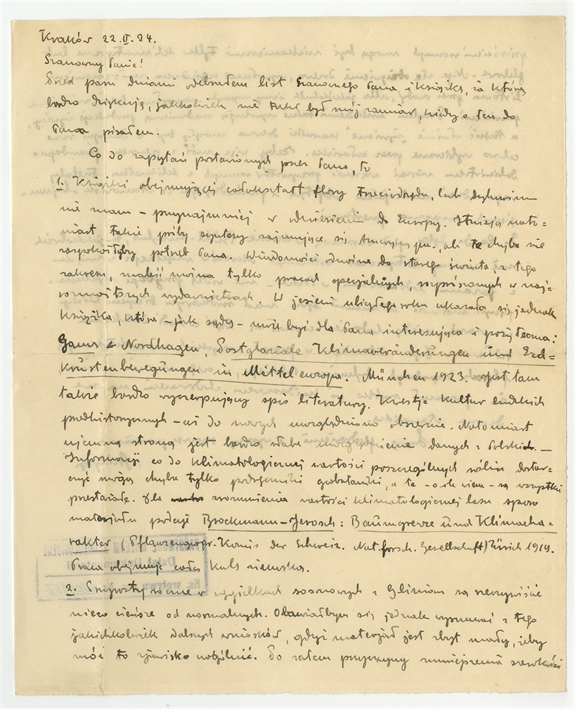 Kraków 22.II.24.
Szanowny Panie!
Przed paru dniami odebrałem list Szanownego Pana i książkę, za którą
bardzo dziękuję, jakkolwiek nie taki był mój zamiar, kiedy o tem do
Pana pisałem.
Co do zapytań postawionych przez Pana, to
1. Książki obejmującej całokształt flory trzeciorzędu, lub dyluwium
nie mam – przynajmniej w odniesieniu do Europy. Istnieją nato-
miast takie próby syntezy zajmujące się Ameryką pn., ale te chyba nie
zaspokoiłyby potrzeb Pana. Wiadomości dwóch do starego świata, z tego
zakresu, znaleźć można tylko w pracach specjalnych, rozprószonych w naj-
rozmaitszych wydawnictwach. W jesieni ubiegłego roku ukazała się jednak
książka, która – jak sądzę – może być dla Pana interesująca i pożyteczna:
Gams & Nordhagen, Postglaziale Klimaveränderungen und Erd-
krustenbewegungen in Mitteleuropa. München 1923. Jest tam
także bardzo wyczerpujący spis literatury. Kwestja kultur ludzkich
predhistorycznych – aż do nowych uwzględniona obszernie. Natomiast
ujemną stroną jest bardzo słabe uwzględnienie danych z Polski. –
Informacyj co do klimatologicznej wartości poszczególnych roślin dostar-
czyć mogą chyba tylko podręczniki geobotaniki, a te – o ile wiem – są wszystkie
przestarzałe. Dla zrozumienia wartości klimatologicznej lasu sporo
materjału podaje Brockmann-Jerosch: Baumgrenze und Klimacha-
rakter (Pflanzengeogr. Komis. der Schweiz. Naturforsch. Gesellschaft) Zürich 1919.
Praca obejmuje całą kulę ziemską.
2. Przyrosty roczne w węgielkach sosnowych z Glinian są rzeczywiście
nieco cieńsze od normalnych. Obawiałbym się jednak wysnuwać z tego
jakichkolwiek dalszych wniosków, gdyż materjał jest zbyt mały, żeby
móc to zjawisko uogólnić. Po zatem przyczyny zmniejszenia szerokości